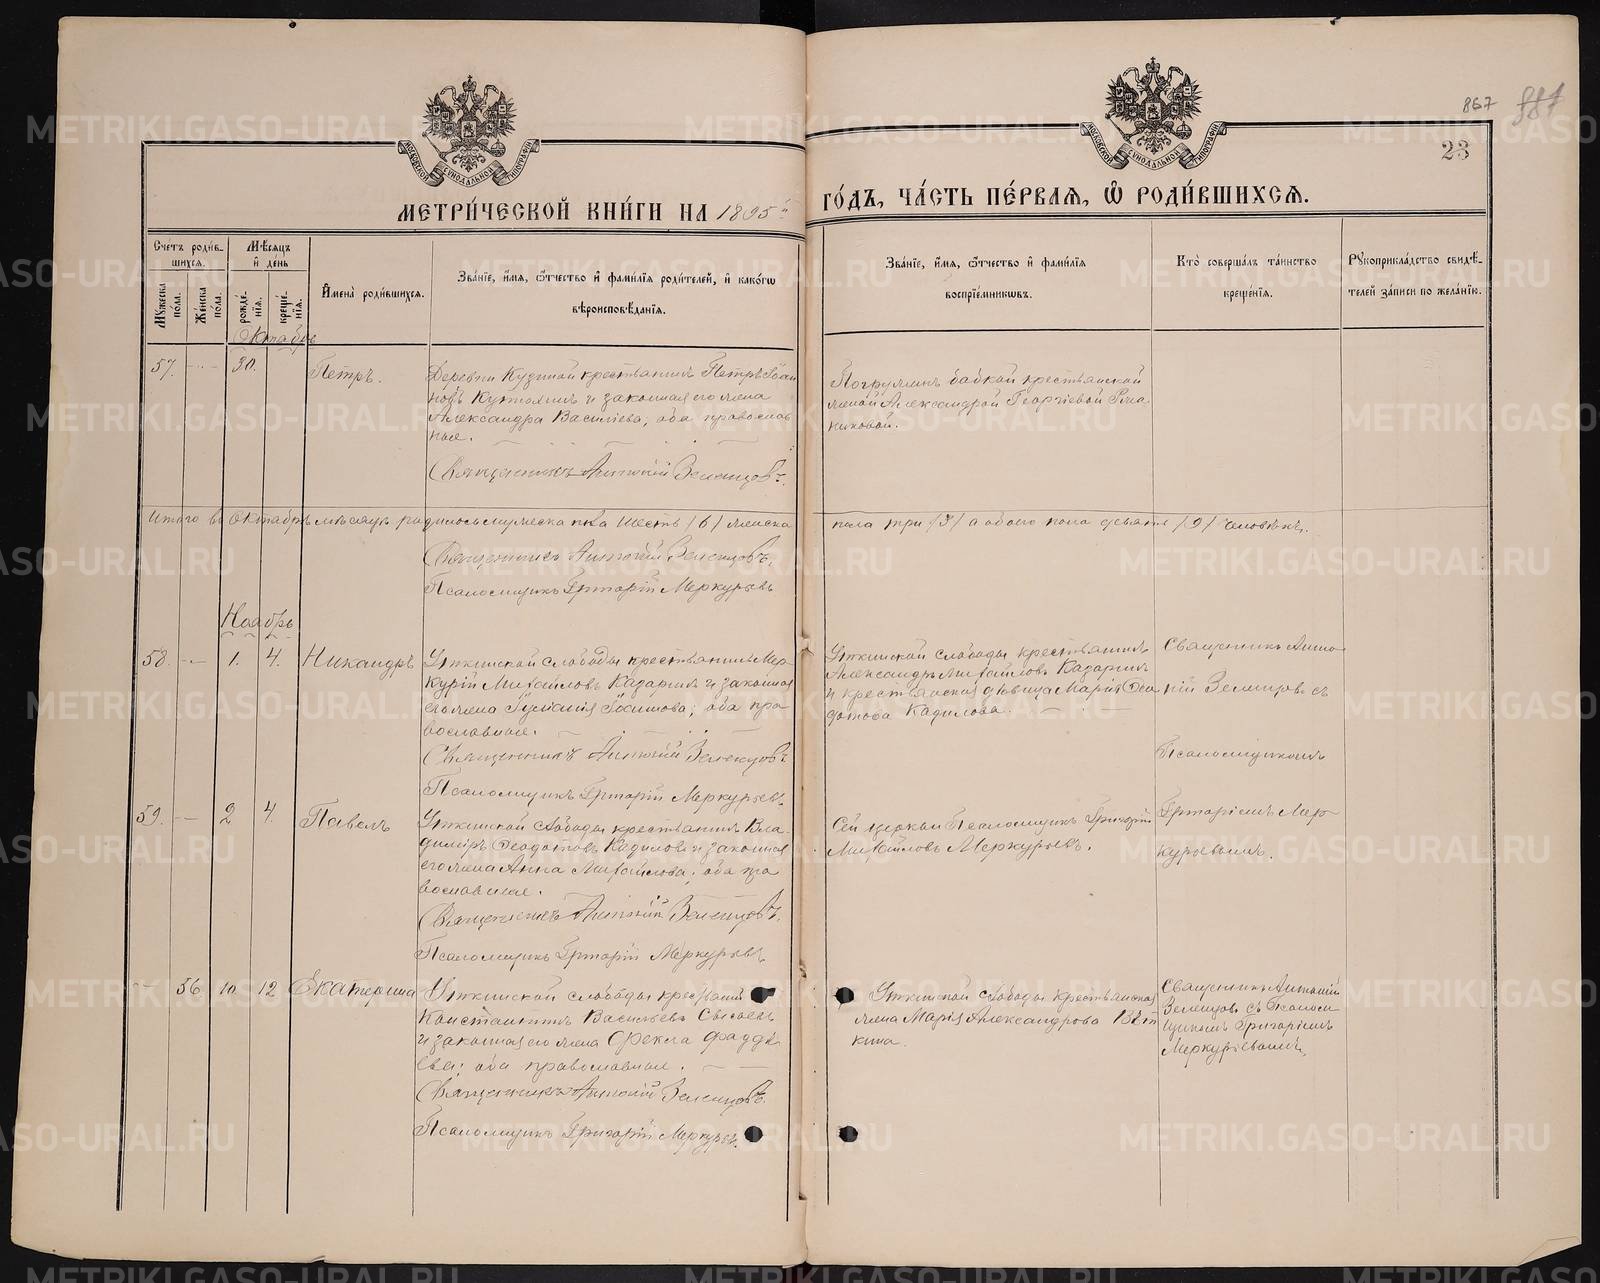 867 887
23
МЕТРИ́ЧЕСКОЙ КНИ́ГИ НА 1895й ГО́ДЪ, ЧА́СТЬ ПЕ́РВАѦ, Ѽ РОДИ́ВШИХСѦ.
Сче́тъ роди́в-
шихсѧ.
Мѣ́сѧцъ
и҆ де́нь
Мꙋ́жеска по́ла.
Же́нска по́ла.
рожде́-
нїѧ.
креще́-
нїѧ.
И҆мена̀ роди́вшихсѧ.
Зва́нїе, и҆́мѧ, ѻ҆́тчество и҆ фами́лїѧ роди́телей, и҆ како́гѡ
вѣроисповѣ́данїѧ.
Зва́нїе, и҆́мѧ, ѻ҆́тчество и҆ фами́лїѧ
воспрїе́мникѡвъ.
Кто̀ соверша́лъ та́инство
креще́нїѧ.
Рꙋкоприкла́дство свидѣ́-
телей за́писи по жела́нїю.
Октябрь
57. 30. Петръ.
Деревни Кузиной крестьянинъ Петръ Iоан
новъ и законная его жена
Александра Васильева, оба православ
ные.
Священникъ Антонiй Зеленцовъ.
бабкой крестьянской
женой Александрой Георгiевой Рома
никовой.
Итого въ Октябрѣ мѣсяцѣ родилось мужеска пола шесть /6/ женска пола три /3/ а обоего пола девять /9/ человѣкъ.
Священникъ Антонiй Зеленцовъ.
Псаломщикъ Григорiй Меркурьевъ
Ноябрь
58. 1. 4. Никандръ
Уткинской слободы крестьянинъ Мер-
курiй Михайловъ Казаринъ и законная
его жена Iулiанiя; оба пра
вославные.
Священникъ Антонiй Зеленцовъ
Псаломщикъ Григорiй Меркурьевъ.
Уткинской слободы крестьянинъ
Александръ Михайловъ Казаринъ
и крестьянская дѣвица Марiя Ѳео
дотова Кадилова.
Священникъ Анто
нiй Зеленцовъ съ
Псаломщикомъ
Григорiемъ Мер-
курьевымъ.
59. 2 4. Павелъ
Уткинской слободы крестьянинъ Вла-
димiръ Ѳеодотовъ Кадиловъ и законная
его жена Анна Михайлова; оба пра
вославные.
Священникъ Антонiй Зеленцовъ.
Псаломщикъ Григорiй Меркурьевъ
Сей церкви Псаломщикъ Григорiй
Михайловъ Меркурьевъ.
56 10. 12 Екатерина
Уткинской слободы крестьянинъ
Константинъ Васильевъ
и законная его жена Ѳекла Фадде
ева; оба православные.
Священникъ Антонiй Зеленцовъ.
Псаломщикъ Григорiй Меркурьев.
Уткинской слободы крестьянская
жена Марiя Александрова Вят
кина.
Священникъ Антонiй
Зеленцовъ съ Псалом
щикомъ Григорiемъ
Меркурьевымъ